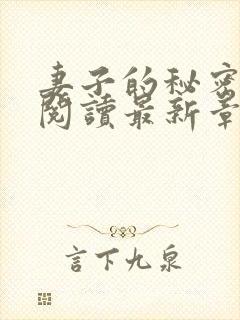 妻子的秘密
閱讀最新章
言下九泉